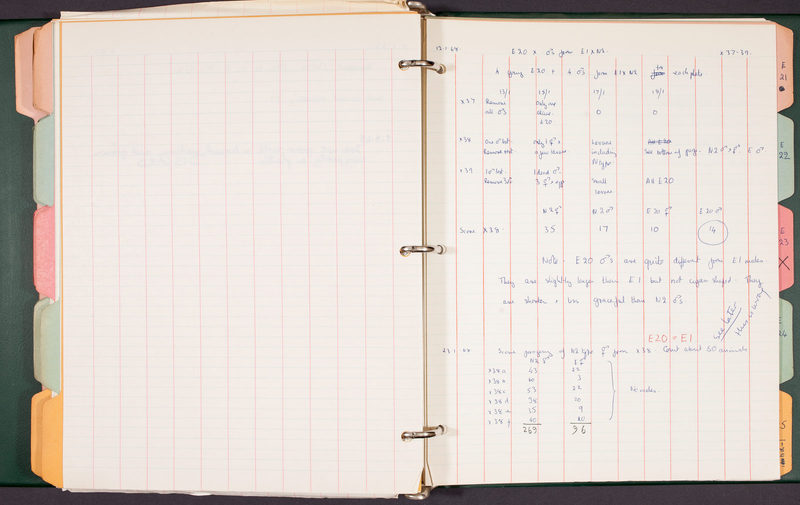 12.1.68. E20 x ♂s from E1xN2. x37-39.
4 young E20 + 4 ♂s from E1xN2 each plate
13/1 15/1 17/1 19/1
x37 Remove only one 0 0
all ♂s
E20
x38 One ♂ lost. only 1 ♂ Larvae All E20
Remove rest a few larvae including See bottom of page. N2 ♂ + ⚥ E ♂
N type
x39 1♂ lost. 1 dead ♂. Small All E20
Remove 3♂ 3 ⚥s + eggs larvae
N2 ⚥ N2 ♂ E20 ⚥ E20 ♂
Score x38. 35 17 10 14
Note. E20 ♂s are quite different from E1 males
They are slightly larger than E1 but not shaped. They
are shorter + less graceful than N2 ♂s.
See later
this is wrong
E20 = E1
23.1.68 Score progeny of N2 type ⚥ from x38. Count about 50 animals
N2 ⚥ E ⚥
x38 a 43 22
x38 b 80 3
x38 c 53 22
x38 d 38 20
x38 e 15 9
x38 f 40 20
269 96
No males.
E
21
E
22
E
23
X
E
24
5